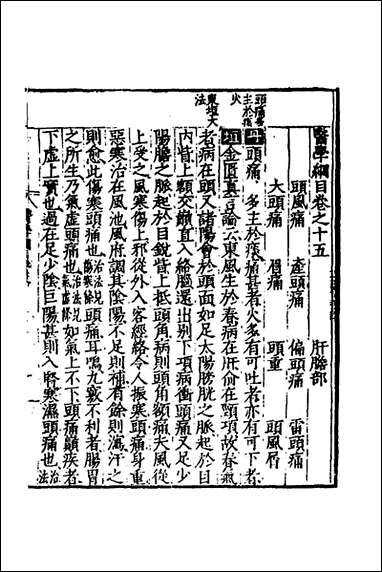 醫學綱目卷之十五　肝膽部
頭風痛　產頭痛　偏頭痛　雷頭痛
大頭痛　眉痛　頭重　頭風屑
頭痛多主於痰
火
丹頭痛多主於痰痛甚者火多有可吐者亦有可下者
東垣大法
垣金匱真言論云東風生於春病在肝俞在頸項故春氣
者病在頭又諸陽會於頭面如足太陽膀胱之脈起於目
內眥上額交巔直入絡腦還出別下項病衝頭痛又足少
陽膽之脈起於目銳眥上抵頭角病則頭角額痛夫風從
上受之風寒傷上邪從外入客經絡令人振寒頭痛身重
惡寒治在風池風府調其陰陽不足則補有餘則瀉汗之
則愈此傷寒頭痛也治法見傷寒條頭痛耳鳴九竅不利者腸胃
之所生乃氣虛頭痛也治法見氣虛條如氣上不下頭痛巔疾者
下虛上實也過在足少陰巨陽甚則入腎寒濕頭痛也治